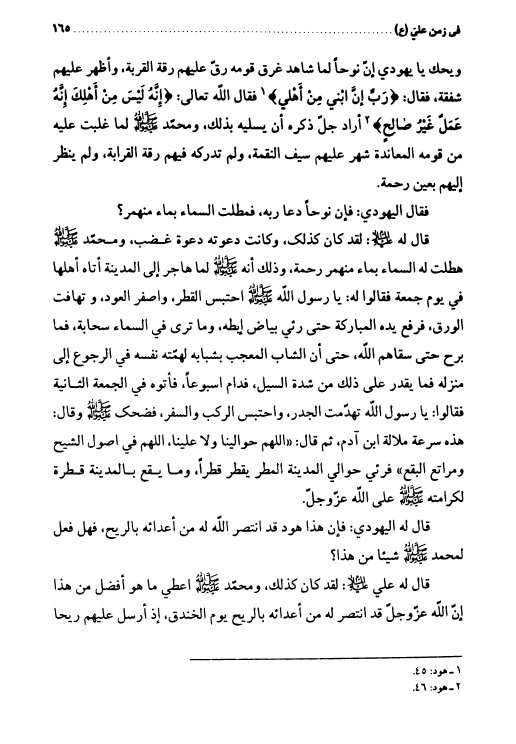 في زمن عليّ (ع) ........................................................................ ١٦٥
ويحك يا يهودي إنّ نوحاً لما شاهد غرق قومه رقّ عليهم رقة القربة، وأظهر عليهم
شفقة، فقال: ﴿رَبِّ إنَّ ابْني مِنْ أهْلي﴾١ فقال اللّه تعالى: ﴿إنَّهُ لَيْسَ مِنْ أهْلِكَ إنَّهُ
عَمَلٌ غَيْرُ صَالِحٍ﴾٢ أراد جلّ ذكره أن يسليه بذلك، ومحمّد ﷺ لما غلبت عليه
من قومه المعاندة شهر عليهم سيف النقمة، ولم تدركه فيهم رقة القرابة، ولم ينظر
إليهم بعين رحمة.
فقال اليهودي: فإن نوحاً دعا ربه، فمطلت السماء بماء منهمر؟
قال له ﵇: لقد كان كذلك، وكانت دعوته دعوة غضب، ومحمّد ﷺ
هطلت له السماء بماء منهمر رحمة، وذلك أنه ﷺ لما هاجر إلى المدينة أتاه أهلها
في يوم جمعة فقالوا له: يا رسول اللّه ﷺ احتبس القطر، واصفر العود، و تهافت
الورق، فرفع يده المباركة حتى رئي بياض إبطه، وما ترى في السماء سحابة، فما
برح حتى سقاهم اللّه، حتى أن الشاب المعجب بشبابه لهمّته نفسه في الرجوع إلى
منزله فما يقدر على ذلك من شدة السيل، فدام اسبوعاً، فأتوه في الجمعة الثانية
فقالوا: يا رسول اللّه تهدّمت الجدر، واحتبس الركب والسفر، فضحك ﷺ وقال:
هذه سرعة ملالة ابن آدم، ثم قال: «اللهم حوالينا ولا علينا، اللهم في اصول الشيح
ومراتع البقع» فرئي حوالي المدينة المطر يقطر قطراً، وما يقع بالمدينة قطرة
لكرامته ﷺ على اللّه عزّوجلّ.
قال له اليهودي: فإن هذا هود قد انتصر اللّه له من أعدائه بالريح، فهل فعل
لمحمد ﷺ شيئا من هذا؟
قال له علي ﵇: لقد كان كذلك، ومحمّد ﷺ اعطي ما هو أفضل من هذا
إنّ اللّه عزّوجلّ قد انتصر له من أعدائه بالريح يوم الخندق، إذ أرسل عليهم ريحا
١ ـ هود: ٤٥.
٢ ـ هود: ٤٦.